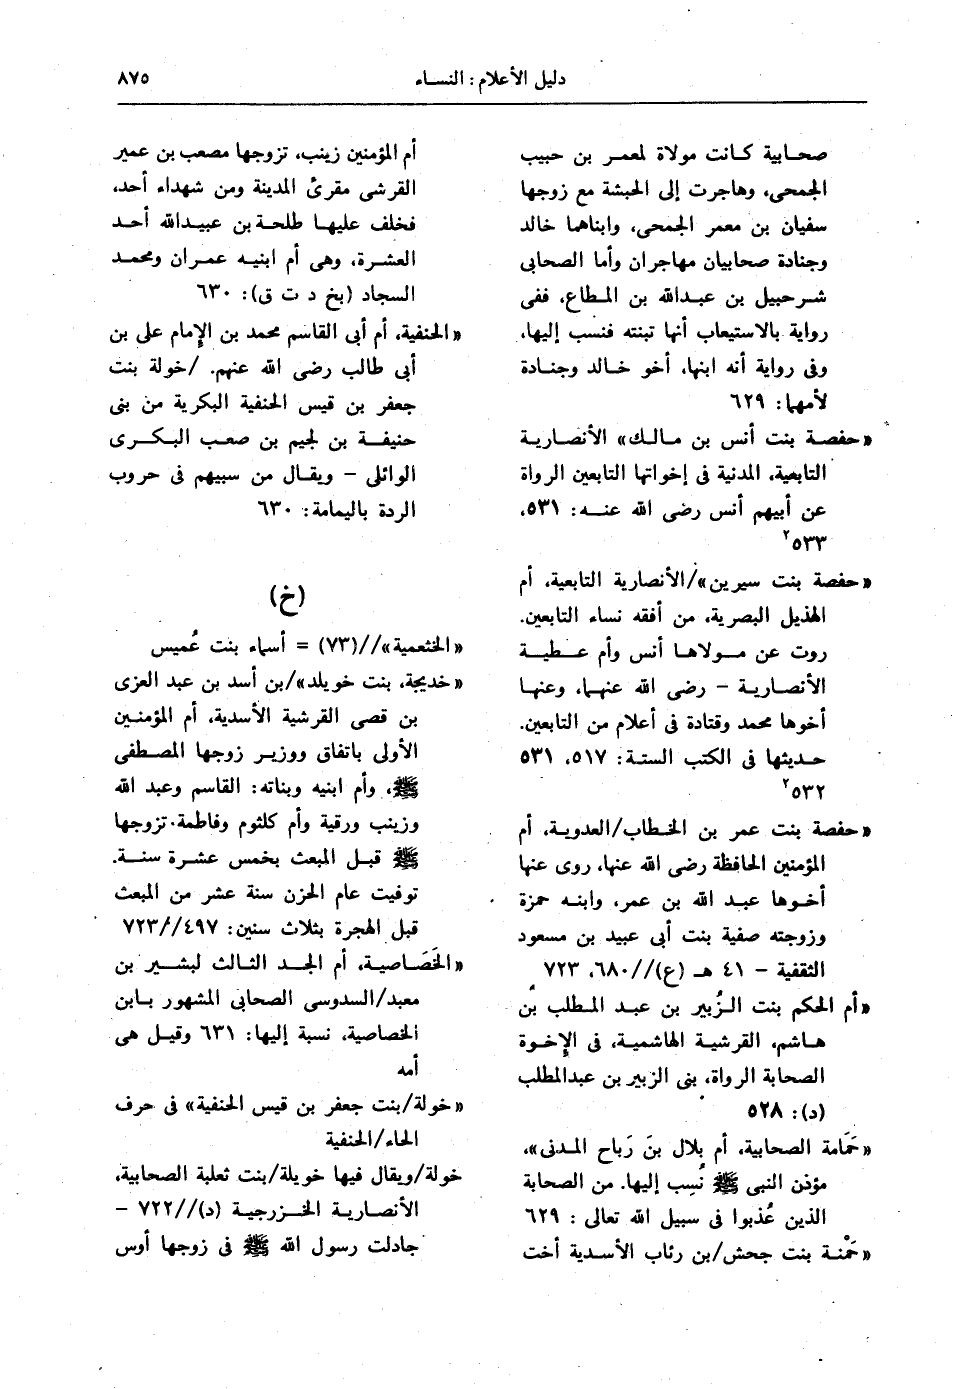 دليل الأعلام : النساء
٨٧٥
صحابية كانت مولاة لمعمر بن حبيب
الجمحى، وهاجرت إلى الحبشة مع زوجها
سفيان بن معمر الجمحى، وابناهما خالد
وجنادة صحابيان مهاجران وأما الصحابى
شرحبيل بن عبدالله بن المطاع، ففى
رواية بالاستيعاب أنها تبنته فنسب إليها،
وفى رواية أنه ابنها، أخو خالد وجنادة
لأمهما: ٦٢٩
«حفصة بنت أنس بن مالك» الأنصارية
التابعية، المدنية فى إخواتها التابعين الرواة
عن أبيهم أنس رضى الله عنه: ٥٣١،
٥٣٣٢
«حفصة بنت سيرين»/الأنصارية التابعية، أم
الهذيل البصرية، من أفقه نساء التابعين.
روت عن مولاها أنس وأم عطية
الأنصارية - رضى الله عنهما، وعنها
أخوها محمد وقتادة فى أعلام من التابعين.
حديثها فى الكتب الستة: ٥١٧، ٥٣١
٥٣٢٢
«حفصة بنت عمر بن الخطاب/العدوية، أم
المؤمنين الحافظة رضى الله عنها، روى عنها
أخوها عبد الله بن عمر، وابنه حمزة
وزوجته صفية بنت أبى عبيد بن مسعود
الثقفية - ٤١ هـ (ع)//٦٨٠، ٧٢٣
«أم الحكم بنت الزُبير بن عبد المطلب بن
هاشم، القرشية الهاشمية، فى الإخوة
الصحابة الرواة، بنى الزبير بن عبدالمطلب
(د): ٥٢٨
«حَمَامة الصحابية، أم بلال بن رَباح المدنى»،
مؤذن النبى ﷺ نُسِب إليها. من الصحابة
الذين عُذبوا فى سبيل الله تعالى : ٦٢٩
«حَمْنة بنت جحش/بن رئاب الأسدية أخت
أم المؤمنين زينب، تزوجها مصعب بن عمير
القرشى مقرئ المدينة ومن شهداء أحد،
فخلف عليها طلحة بن عبيدالله أحد
العشرة، وهى أم ابنيه عمران ومحمد
السجاد (بخ د ت ق): ٦٣٠
«الحنفية، أم أبى القاسم محمد بن الإمام على بن
أبى طالب رضى الله عنهم. /خولة بنت
جعفر بن قيس الحنفية البكرية من بنى
حنيفة بن لجيم بن صعب البكرى
الوائلى - ويقال من سبيهم فى حروب
الردة باليمامة: ٦٣٠
(خ)
«الخثعمية»//(٧٣) = أسماء بنت عُميس
«خديجة، بنت خويلد»/بن أسد بن عبد العزى
بن قصى القرشية الأسدية، أم المؤمنين
الأولى باتفاق ووزير زوجها المصطفى
ﷺ، وأم ابنيه وبناته: القاسم وعبد الله
وزينب ورقية وأم كلثوم وفاطمة. تزوجها
ﷺ قبل المبعث بخمس عشرة سنة.
توفيت عام الحزن سنة عشر من المبعث
قبل الهجرة بثلاث سنين: ٤٩٧//٧٢٣
«الخَصَاصية، أم الجد الثالث لبشير بن
معبد/السدوسى الصحابى المشهور بابن
الخصاصية، نسبة إليها: ٦٣١ وقيل هى
أمه
«خولة/بنت جعفر بن قيس الحنفية» فى حرف
الحاء/الحنفية
خولة/ويقال فيها خويلة/بنت ثعلبة الصحابية،
الأنصارية الخزرجية (د)//٧٢٢ -
جادلت رسول الله ﷺ فى زوجها أوس